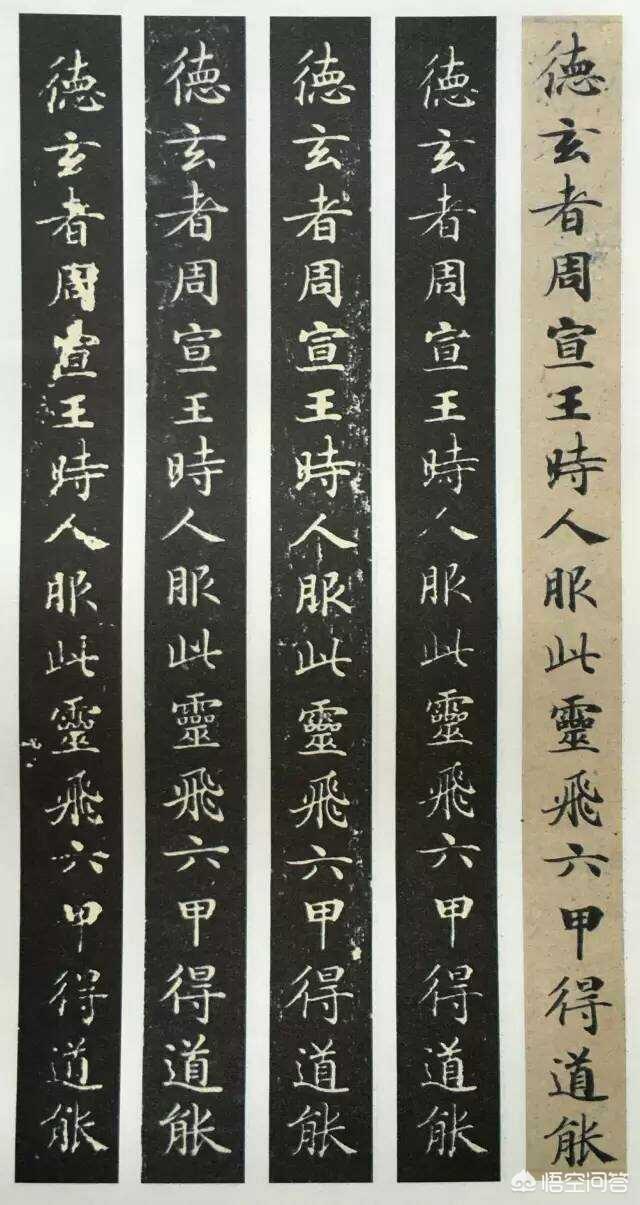 德玄者周宣王時人服此靈飛六甲得道能
德玄者周宣王時人服此靈飛六甲得道能
德玄者周宣王時人服此靈飛六甲得道能
德玄者周宣王時人服此靈飛六甲得道能
德玄者周宣王時人服此靈飛六甲得道能
悟空问答